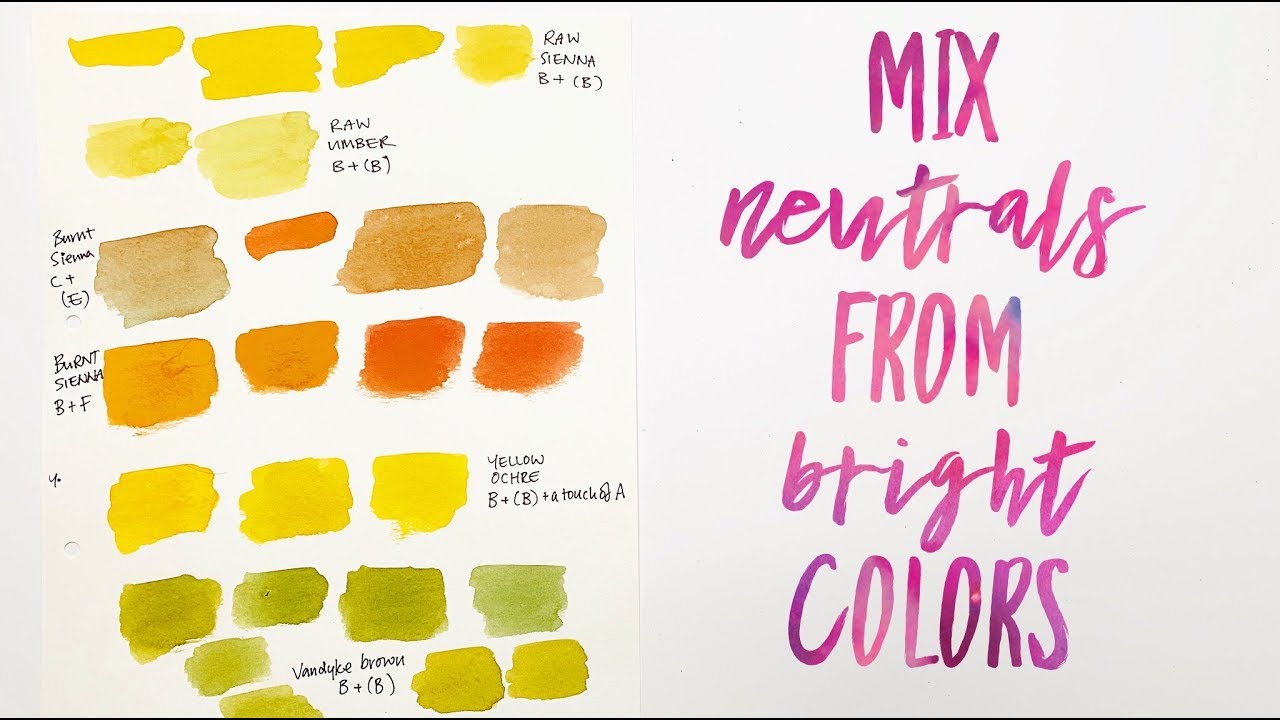 RAW
SIENNA
B + (B)
RAW
UMBER
B + (B)
Burnt
Sienna
C +
(E)
BURNT
SIENNA
B + F
Y.
YELLOW
OCHRE
B + (B) + a touch of A
Vandyke brown
B + (B)
MIX
neutrals
FROM
bright
COLORS